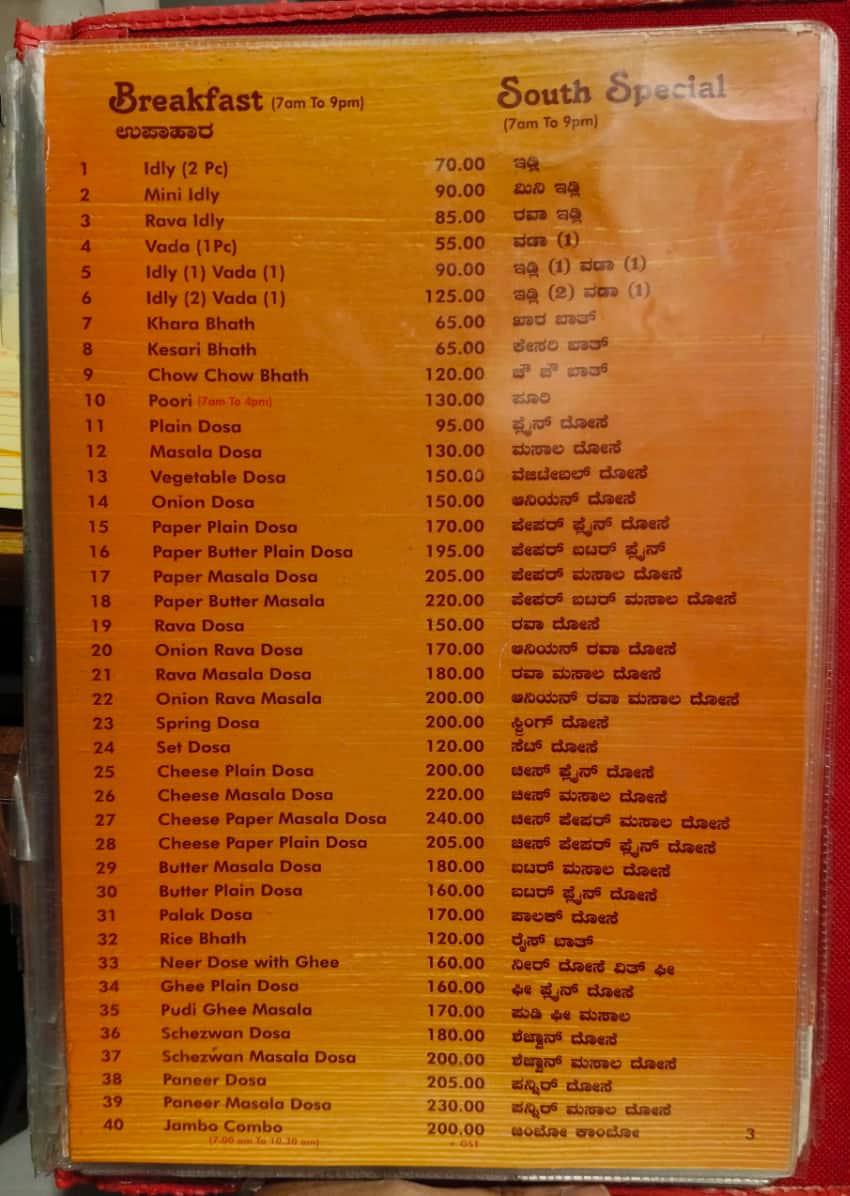 Breakfast (7am To 9pm) South Special
ಉಪಾಹಾರ (7am To 9pm)
1 Idly (2 Pc) 70.00 ಇಡ್ಲಿ
2 Mini Idly 90.00 ಮಿನಿ ಇಡ್ಲಿ
3 Rava Idly 85.00 ರವಾ ಇಡ್ಲಿ
4 Vada (1Pc) 55.00 ವಡಾ (1)
5 Idly (1) Vada (1) 90.00 ಇಡ್ಲಿ (1) ವಡಾ (1)
6 Idly (2) Vada (1) 125.00 ಇಡ್ಲಿ (2) ವಡಾ (1)
7 Khara Bhath 65.00 ಖಾರ ಬಾತ್
8 Kesari Bhath 65.00 ಕೇಸರಿ ಬಾತ್
9 Chow Chow Bhath 120.00 ಚೌ ಚೌ ಬಾತ್
10 Poori (7am To 4pm) 130.00 ಪೂರಿ
11 Plain Dosa 95.00 ಪ್ಲೈನ್ ದೋಸೆ
12 Masala Dosa 130.00 ಮಸಾಲ ದೋಸೆ
13 Vegetable Dosa 150.00 ವೆಜಿಟೇಬಲ್ ದೋಸೆ
14 Onion Dosa 150.00 ಆನಿಯನ್ ದೋಸೆ
15 Paper Plain Dosa 170.00 ಪೇಪರ್ ಪ್ಲೈನ್ ದೋಸೆ
16 Paper Butter Plain Dosa 195.00 ಪೇಪರ್ ಬಟರ್ ಪ್ಲೈನ್
17 Paper Masala Dosa 205.00 ಪೇಪರ್ ಮಸಾಲ ದೋಸೆ
18 Paper Butter Masala 220.00 ಪೇಪರ್ ಬಟರ್ ಮಸಾಲ ದೋಸೆ
19 Rava Dosa 150.00 ರವಾ ದೋಸೆ
20 Onion Rava Dosa 170.00 ಆನಿಯನ್ ರವಾ ದೋಸೆ
21 Rava Masala Dosa 180.00 ರವಾ ಮಸಾಲ ದೋಸೆ
22 Onion Rava Masala 200.00 ಆನಿಯನ್ ರವಾ ಮಸಾಲ ದೋಸೆ
23 Spring Dosa 200.00 ಸ್ಪ್ರಿಂಗ್ ದೋಸೆ
24 Set Dosa 120.00 ಸೆಟ್ ದೋಸೆ
25 Cheese Plain Dosa 200.00 ಚೀಸ್ ಪ್ಲೈನ್ ದೋಸೆ
26 Cheese Masala Dosa 220.00 ಚೀಸ್ ಮಸಾಲ ದೋಸೆ
27 Cheese Paper Masala Dosa 240.00 ಚೀಸ್ ಪೇಪರ್ ಮಸಾಲ ದೋಸೆ
28 Cheese Paper Plain Dosa 205.00 ಚೀಸ್ ಪೇಪರ್ ಪ್ಲೈನ್ ದೋಸೆ
29 Butter Masala Dosa 180.00 ಬಟರ್ ಮಸಾಲ ದೋಸೆ
30 Butter Plain Dosa 160.00 ಬಟರ್ ಪ್ಲೈನ್ ದೋಸೆ
31 Palak Dosa 170.00 ಪಾಲಕ್ ದೋಸೆ
32 Rice Bhath 120.00 ರೈಸ್ ಬಾತ್
33 Neer Dose with Ghee 160.00 ನೀರ್ ದೋಸೆ ವಿತ್ ಘೀ
34 Ghee Plain Dosa 160.00 ಘೀ ಪ್ಲೈನ್ ದೋಸೆ
35 Pudi Ghee Masala 170.00 ಪುಡಿ ಘೀ ಮಸಾಲ
36 Schezwan Dosa 180.00 ಶೆಜ್ವಾನ್ ದೋಸೆ
37 Schezwan Masala Dosa 200.00 ಶೆಜ್ವಾನ್ ಮಸಾಲ ದೋಸೆ
38 Paneer Dosa 205.00 ಪನ್ನಿರ್ ದೋಸೆ
39 Paneer Masala Dosa 230.00 ಪನ್ನಿರ್ ಮಸಾಲ ದೋಸೆ
40 Jambo Combo 200.00 ಜಂಬೋ ಕಾಂಬೋ
(7.00 am To 10.30 am) + GST
3